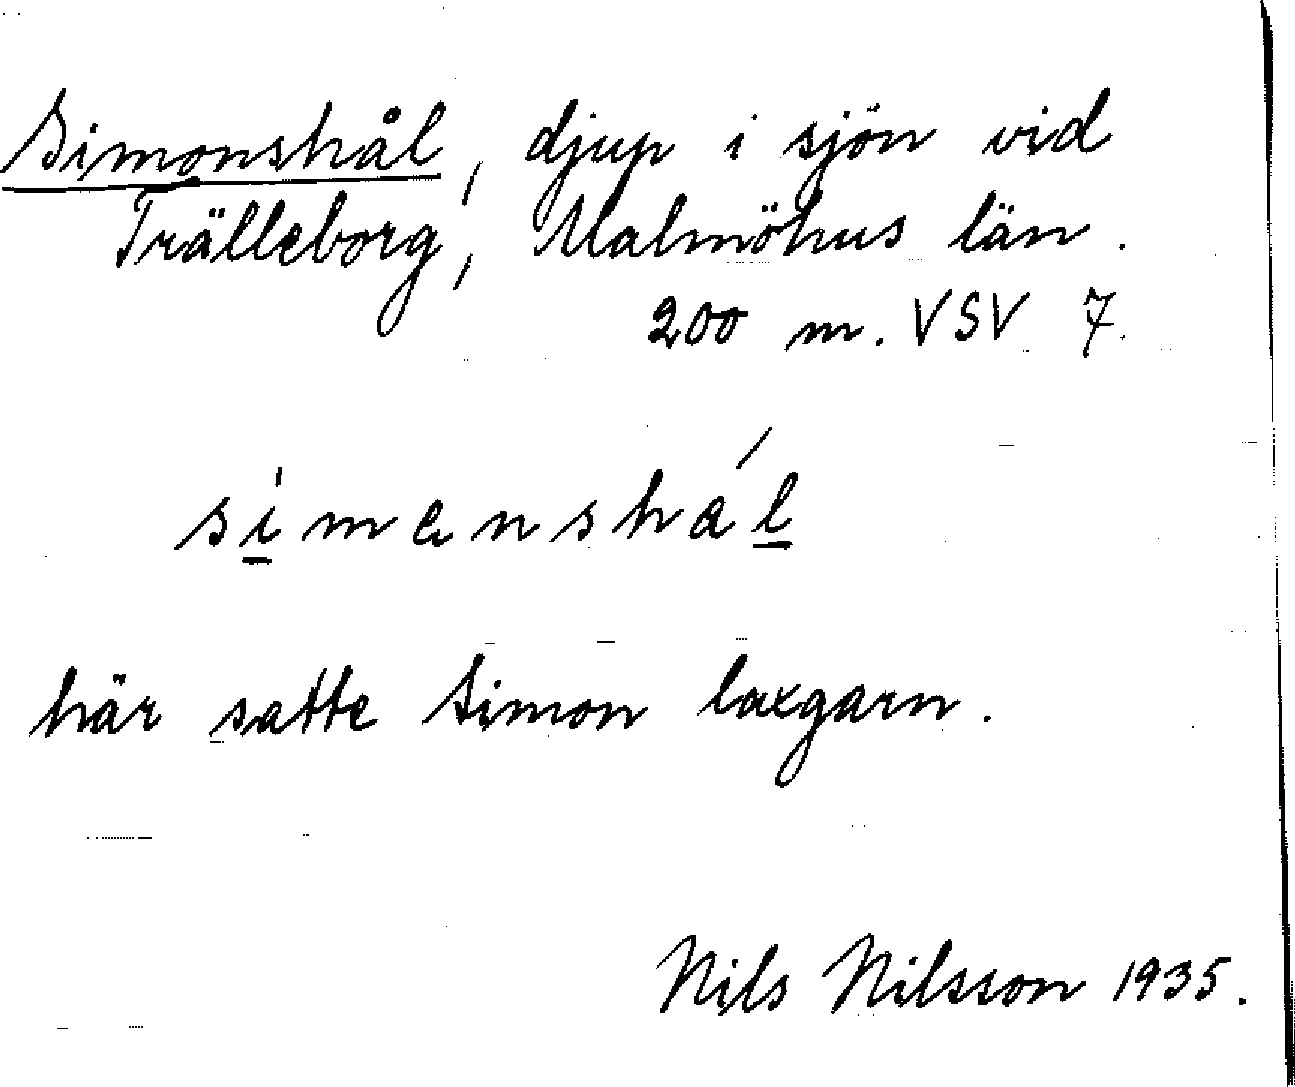 Simonshål, djup i sjön vid
Trälleborg, Malmöhus län.
200 m. VSV 7.
simanshá́l
här satte Simon laxgarn.
Nils Nilsson 1935.